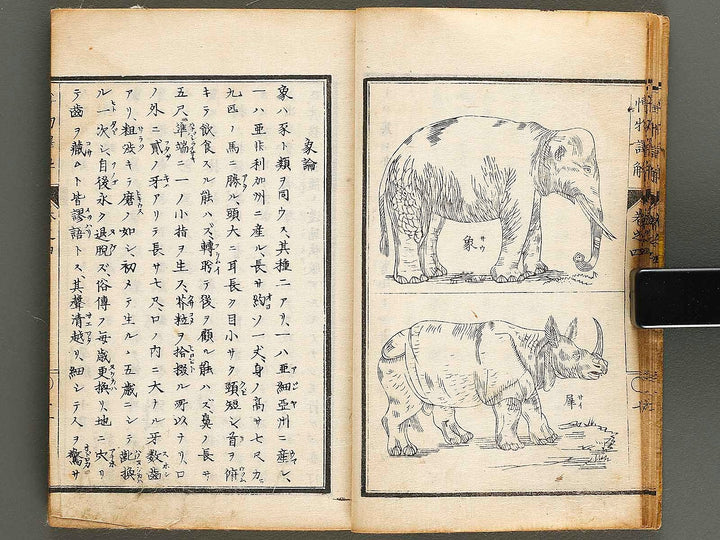 象
サウ
犀
サイ
象論
象ハ豕ト類ヲ同ウス、其種二アリ、一ハ亜細亜州ニ産シ、
一ハ亜非利加州ニ産ル、長サ約ソ一丈、身ノ高サ七尺、力
九匹ノ馬ニ勝ル、頭大ニ耳長ク目小サク頸短シ首ヲ俯
キテ飲食スル能ハズ、轉盻テ後ヲ顧ル能ハズ、鼻ノ長サ
五尺、準端ニ一ノ小指ヲ生ス、芥粒ヲ拾掇ル所以ナリ、口
ノ外ニ貳ノ牙アリテ長サ七尺、口ノ内ニ大ナル牙数齒
アリ、粗渋キテ磨ノ如シ、初メテ生ル五歳ニシテ齔換
ル一次シ、自後永ク退脱ズ、俗傳フ毎歳更換リ地ニ穴リ
テ齒ヲ藏ムト皆謬語トス、其聲清越リ、細シテ人ヲ驚サ